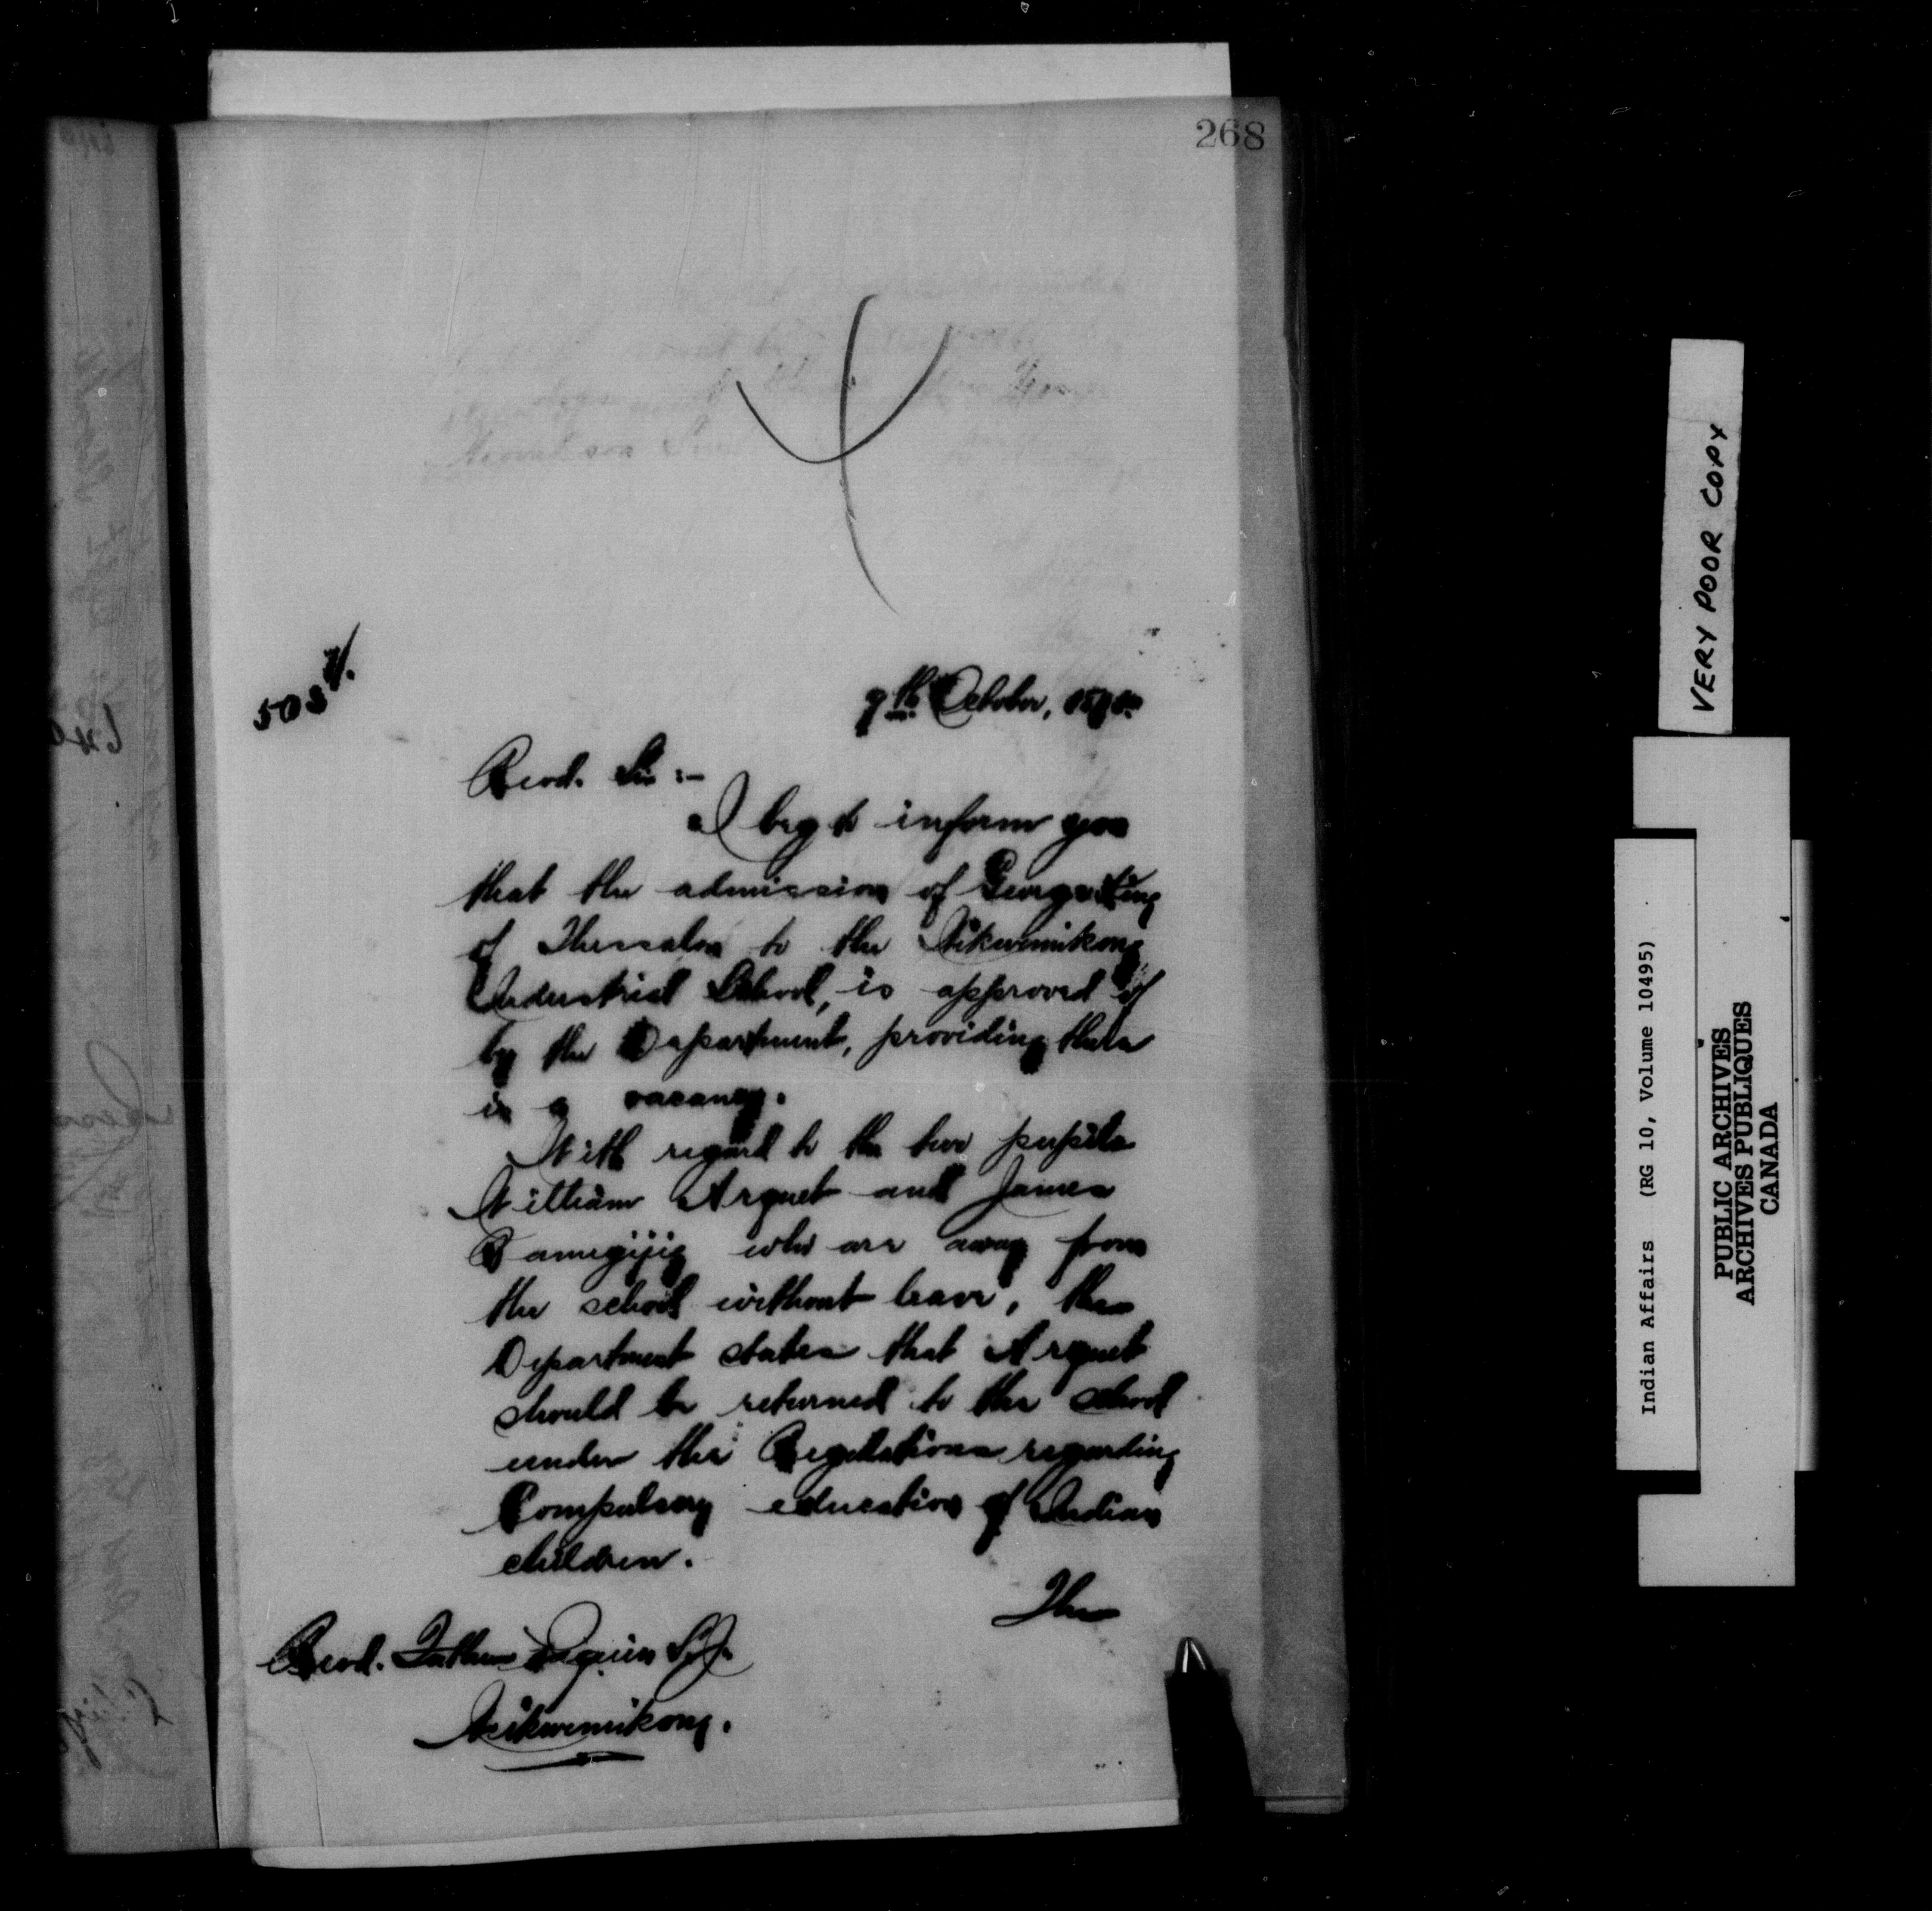 268
503
7th October, 189
Revd. Sir :-
I beg to inform you
that the admission of George King
of Thessalon to the Wikwemikong
Industrial School, is approved of
by the Department, providing there
is a vacancy.
With regard to the two pupils
William Arquet and James
who are away from
the school without leave, the
Department states that Arquet
should be returned to the school
under the Regulations regarding
Compulsory education of Indian
children.
The
Revd. Father Paquin S.J.
Wikwemikong.
VERY POOR COPY
Indian Affairs (RG 10, Volume 10495)
PUBLIC ARCHIVES
ARCHIVES PUBLIQUES
CANADA